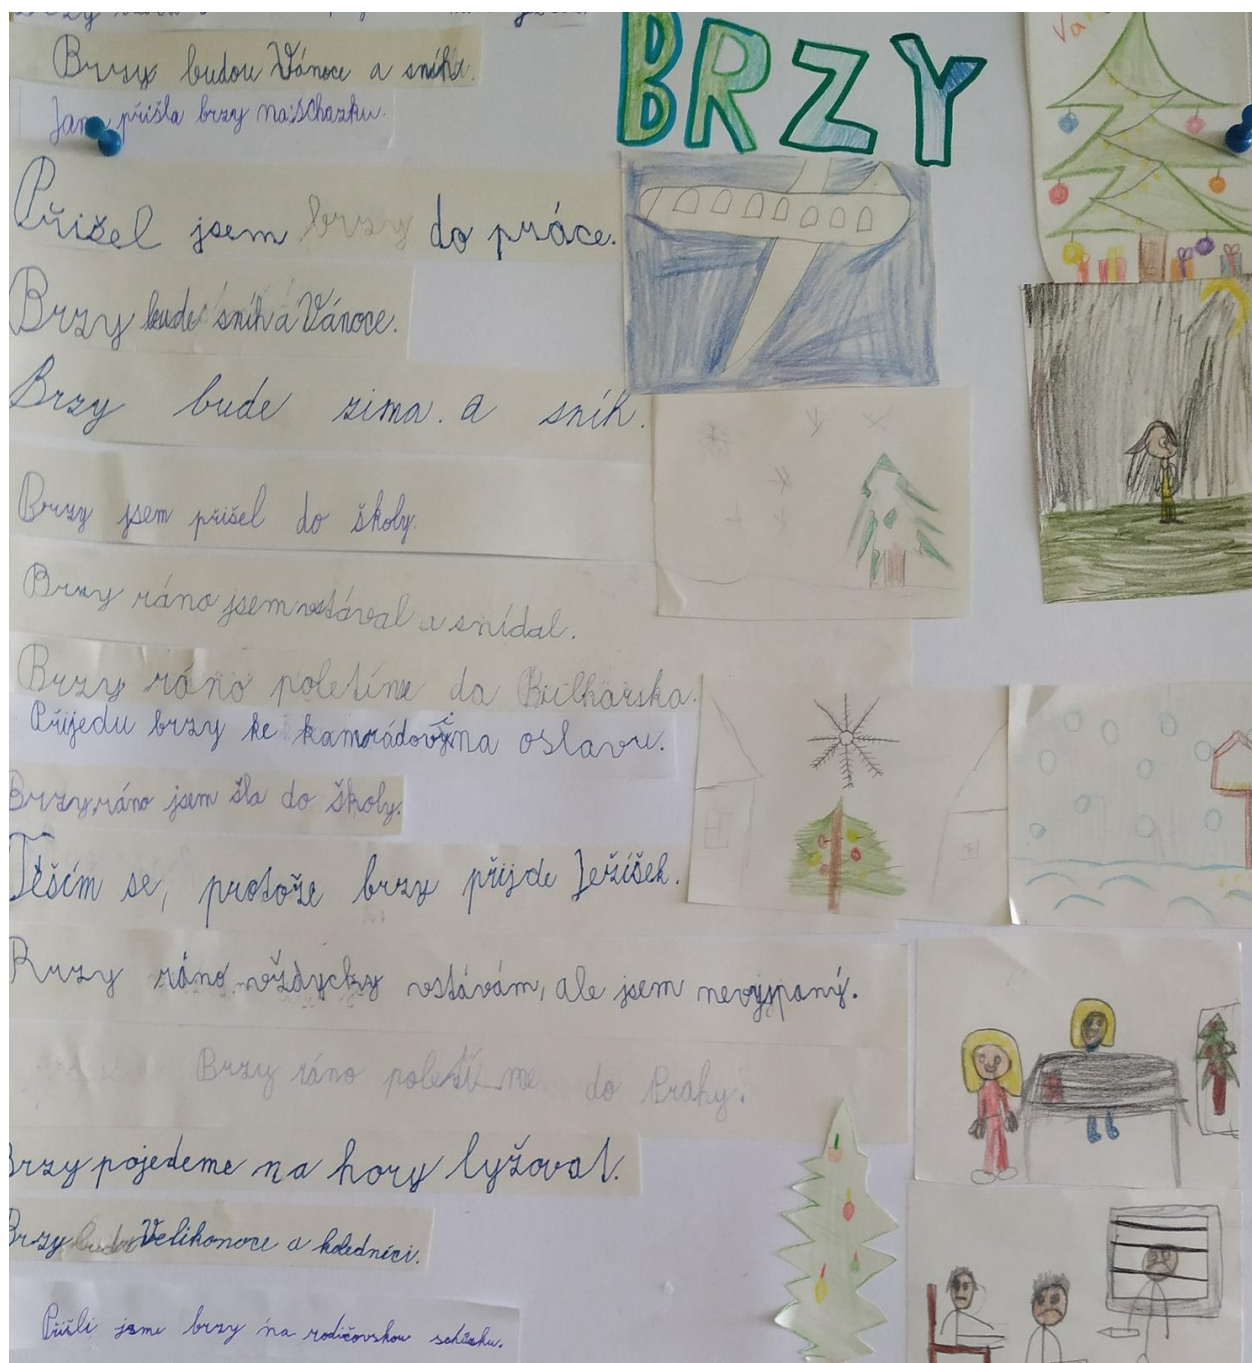 Brzy
BRZY
Brzy budou Vánoce a sníh.
Jana přišla brzy na schazku.
Přišel jsem brzy do práce.
Brzy bude sníh a Vánoce.
Brzy bude zima. a sníh.
Brzy jsem přišel do školy.
Brzy ráno jsem vstával a snídal.
Brzy ráno poletíme do Bulharska.
Přijedu brzy ke kamarádovi na oslavu.
Brzy ráno jsem šla do školy.
Těším se, protože brzy přijde Ježíšek.
Brzy ráno vždycky vstávám, ale jsem nevyspaný.
Brzy ráno poletíme do Prahy.
Brzy pojedeme na hory lyžovat.
Brzy budou Velikonoce a koledníci.
Přišli jsme brzy na rodičovskou schůzku.